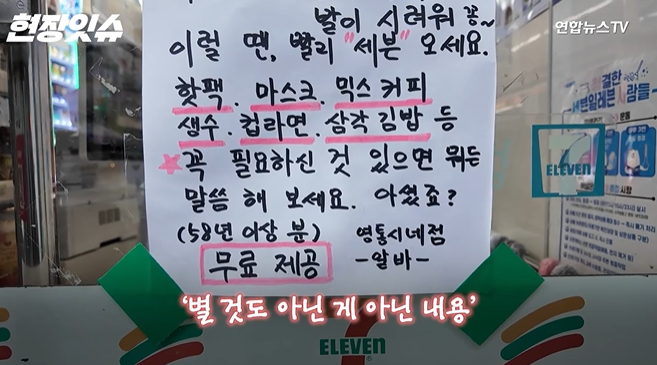 현장잇슈
연합뉴스TV
발이 시려워 꽁~
이럴 땐, 빨리 "세븐" 오세요.
핫팩. 마스크. 믹스커피
생수. 컵라면. 삼각김밥 등
꼭 필요하신 것 있으면 뭐든
말씀 해 보세요. 아셨죠?
(58년 이상 분) 영통시네점
무료 제공 -알바-
ELEVEN
'별 것도 아닌 게 아닌 내용'
ELEVEN